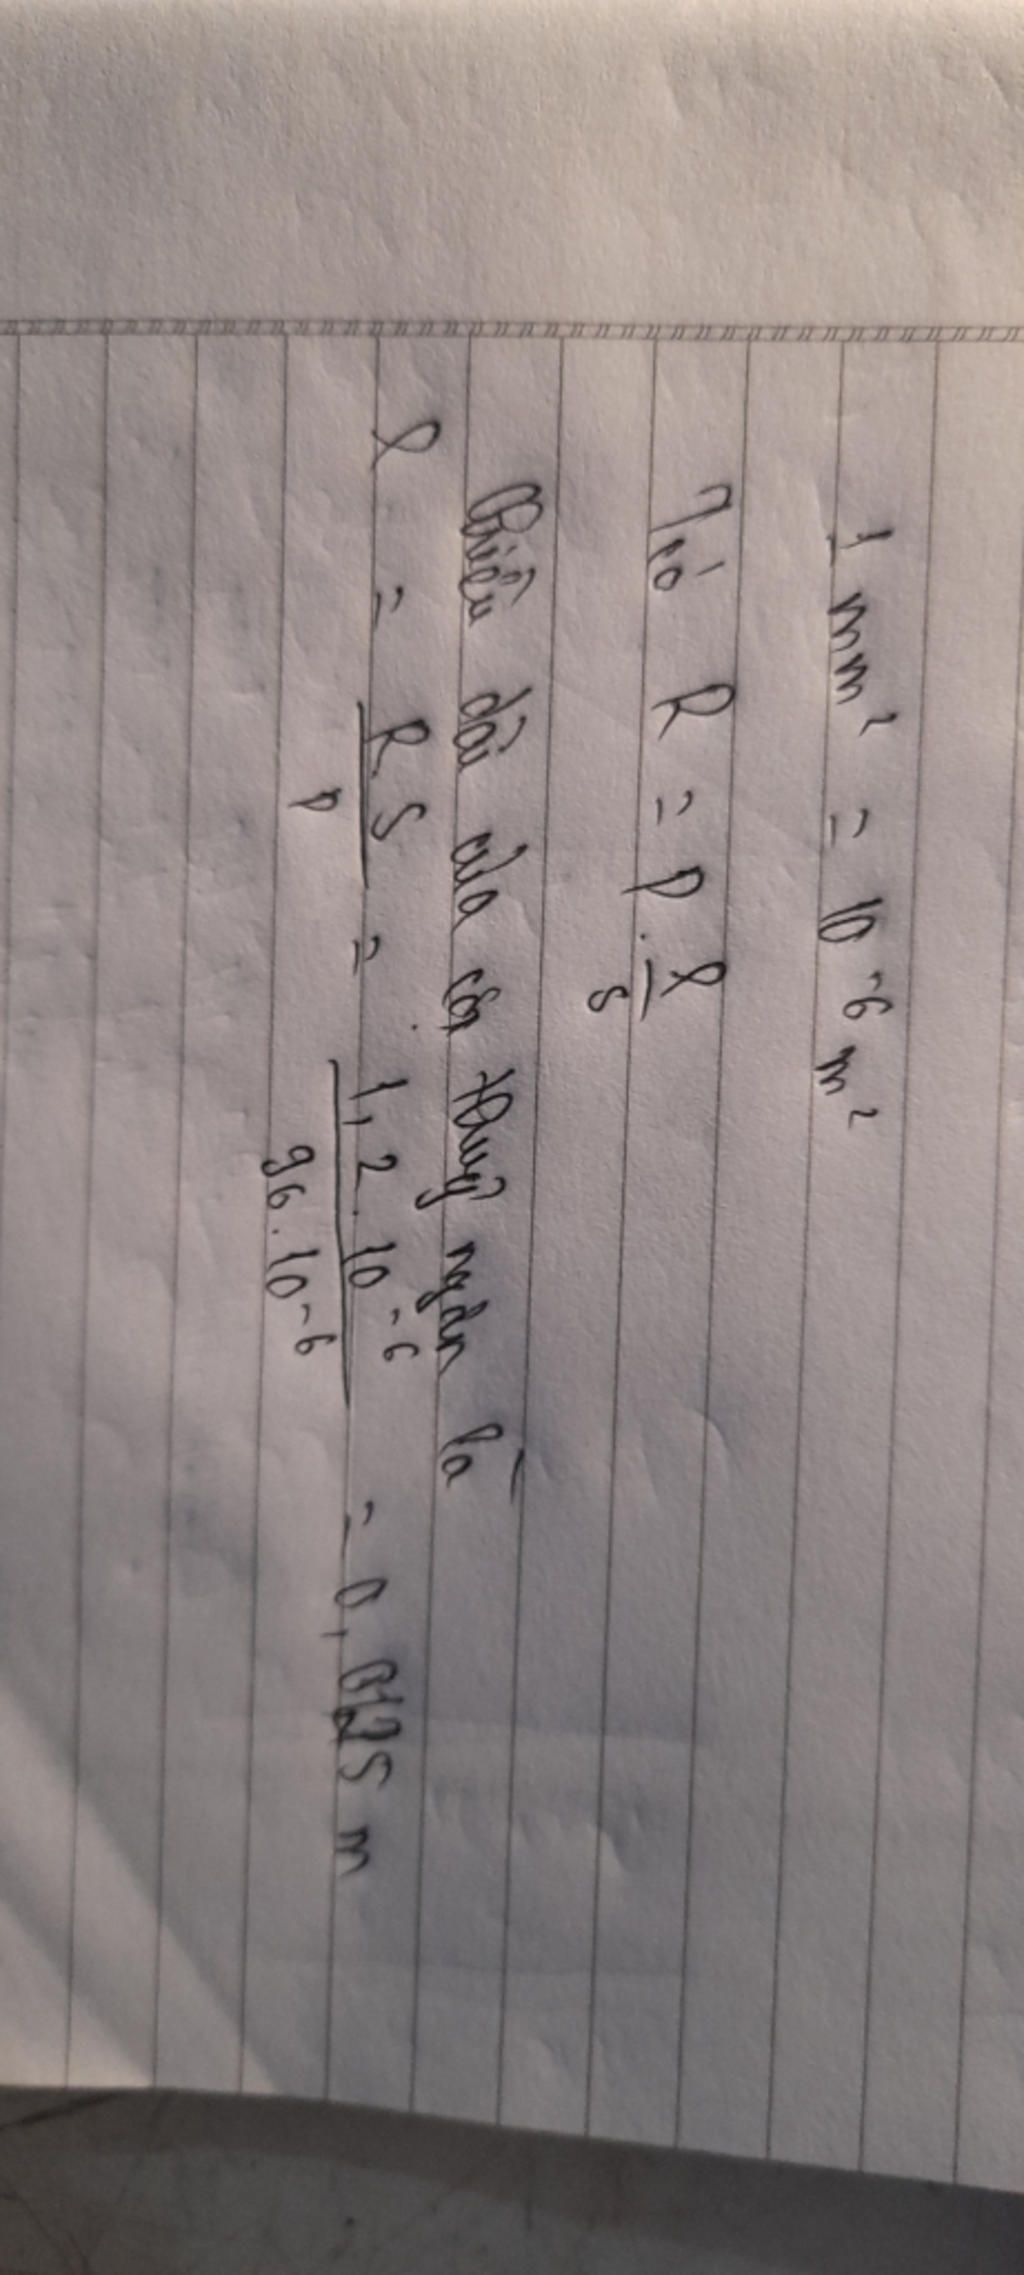 1 mm² = 10⁻⁶ m²
Từ R = ρ . l/S
Chiều dài của cột thuỷ ngân là
l = R S / ρ = 1,2 . 10⁻⁶ / 96 . 10⁻⁶ = 0,0125 m